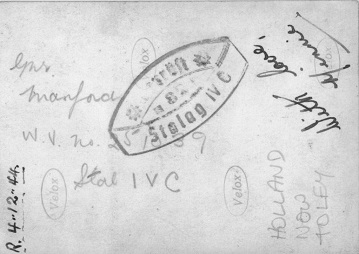 Gnr.
Manford
W.V. no. 2
Stal IVC
Geprüft
Stalag IV C
With love,
Minnie
HOLLAND
NOW
TOLEY
R. 4-12-44.
Velox
Velox
Velox